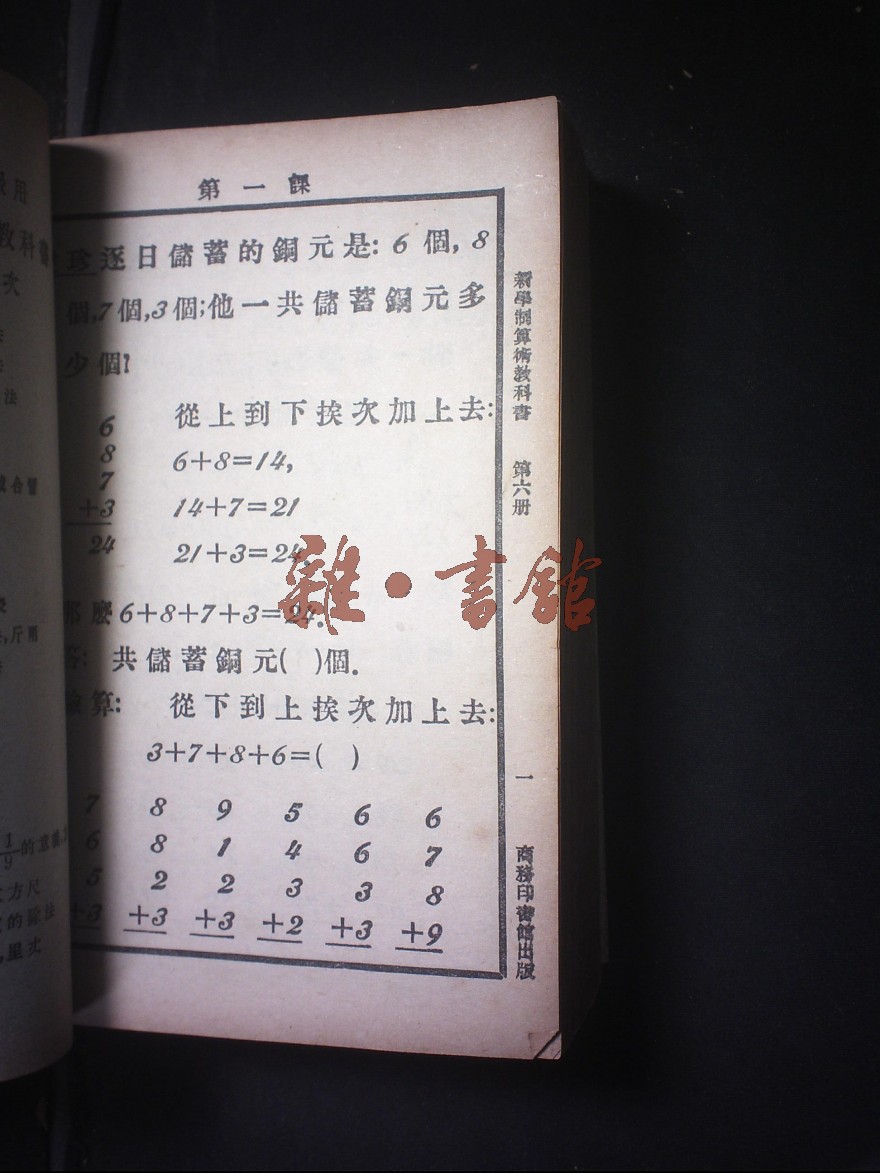 第一課
珍逐日儲蓄的銅元是: 6個, 8
個, 7個, 3個; 他一共儲蓄銅元多
少個?
從上到下挨次加上去:
6
8
7
+3
24
6+8=14,
14+7=21
21+3=24,
那麼6+8+7+3=24.
答: 共儲蓄銅元( )個.
驗算: 從下到上挨次加上去:
3+7+8+6=( )
7 8 9 5 6 6
6 8 1 4 6 7
5 2 2 3 3 8
+3 +3 +3 +2 +3 +9
新學制算術教科書 第六册
一
商務印書館出版
雜·書館
用
教科書
次
法
合習
斤兩
1/9的意義
方尺
的除法
里丈